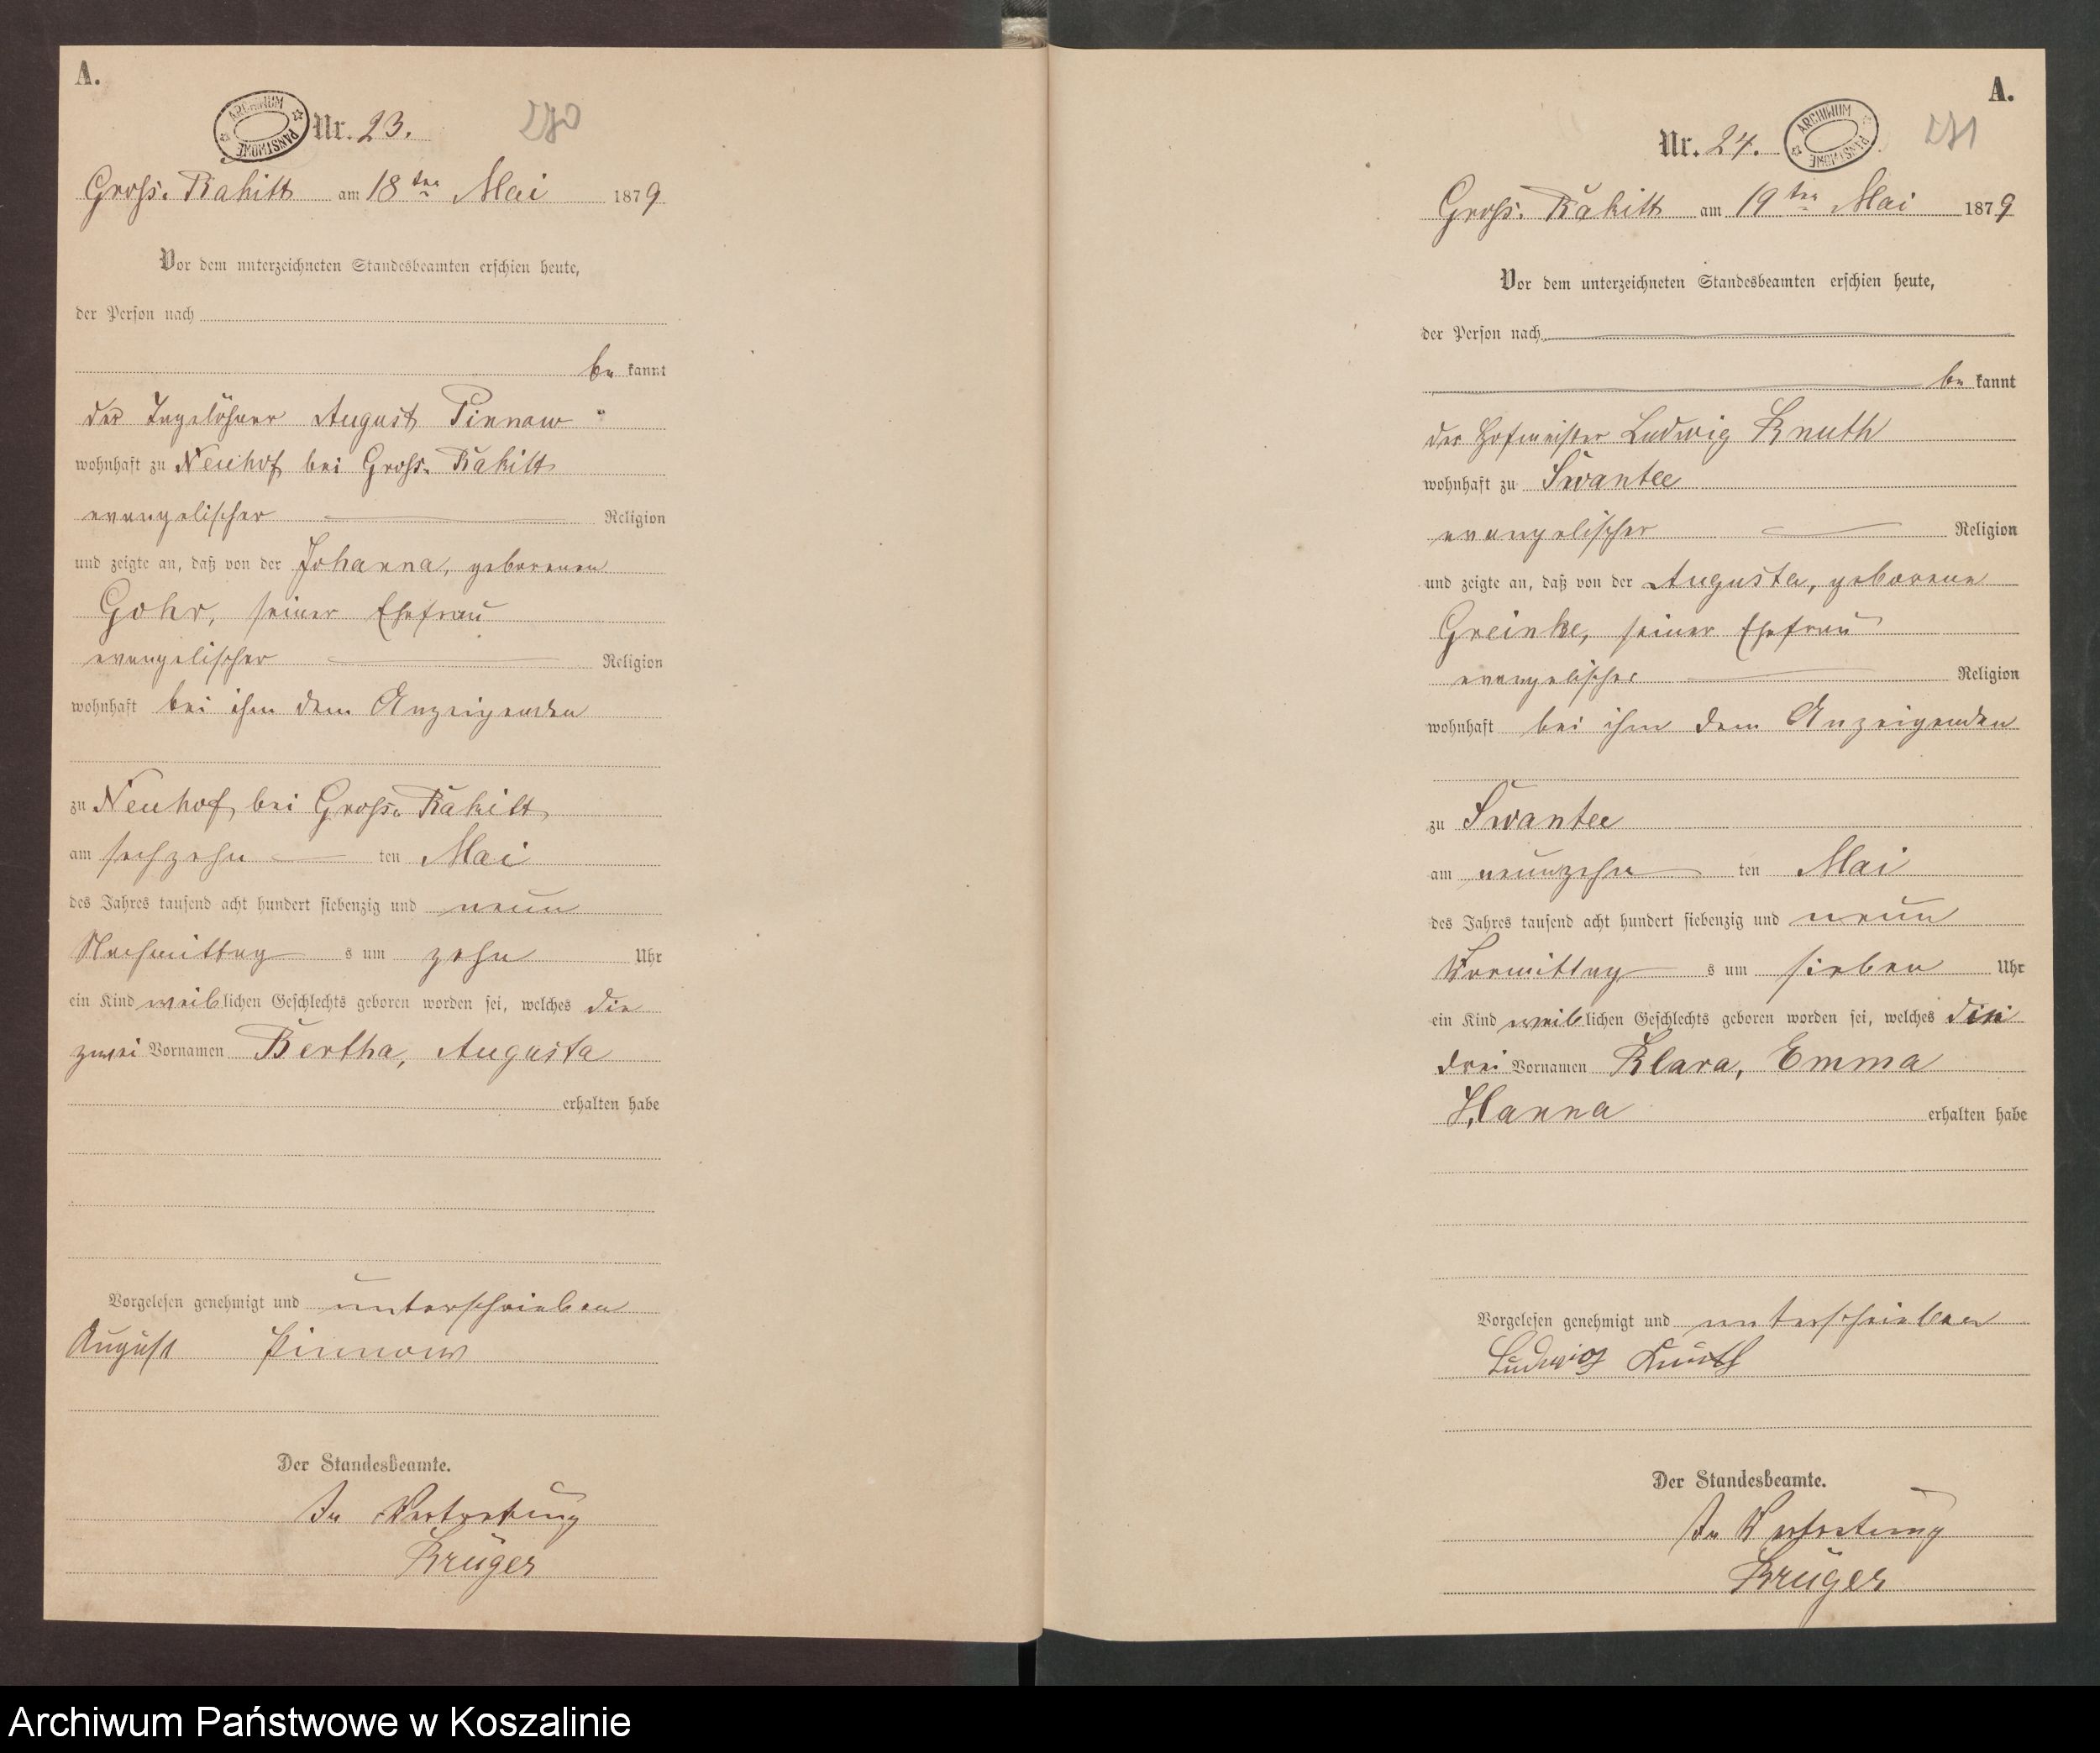 A.
ARCHIWUM PAŃSTWOWE
Nr. 23.
270
Gross. Rakitt am 18ten Mai 1879
Vor dem unterzeichneten Standesbeamten erschien heute,
der Person nach
be kannt
der Tagelöhner August Pinnow
wohnhaft zu Neuhof bei Gross. Rakitt
evangelischer Religion
und zeigte an, daß von der Johanna, geborenen
Gohr, seiner Ehefrau
evangelischer Religion
wohnhaft bei ihm dem Anzeigenden
zu Neuhof bei Gross. Rakitt,
am sechzehn ten Mai
des Jahres tausend acht hundert siebenzig und neun
Nachmittag s um zehn Uhr
ein Kind weiblichen Geschlechts geboren worden sei, welches die
zwei Vornamen Bertha, Augusta
erhalten habe
Vorgelesen genehmigt und unterschrieben
August Pinnow
Der Standesbeamte.
In Vertretung
Krüger
A.
Nr. 24.
ARCHIWUM PAŃSTWOWE
271
Gross. Rakitt am 19ten Mai 1879
Vor dem unterzeichneten Standesbeamten erschien heute,
der Person nach
be kannt
der Hofmeister Ludwig Knuth
wohnhaft zu Swantee
evangelischer Religion
und zeigte an, daß von der Augusta, geborene
Greinke, seiner Ehefrau
evangelischer Religion
wohnhaft bei ihm dem Anzeigenden
zu Swantee
am neunzehn ten Mai
des Jahres tausend acht hundert siebenzig und neun
Vormittag s um sieben Uhr
ein Kind weiblichen Geschlechts geboren worden sei, welches die
drei Vornamen Klara, Emma
Hanna erhalten habe
Vorgelesen genehmigt und unterschrieben
Ludwig Knuth
Der Standesbeamte.
In Vertretung
Krüger
Archiwum Państwowe w Koszalinie